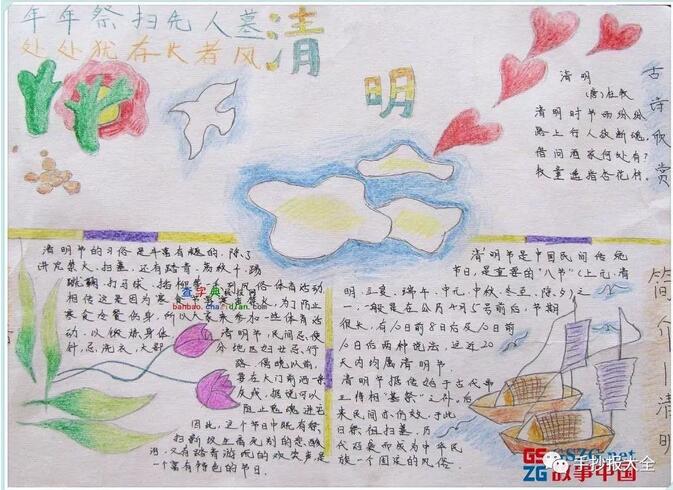 年年祭扫先人墓
处处犹存长者风
清
明
清明
(唐)杜牧
清明时节雨纷纷
路上行人欲断魂。
借问酒家何处有?
牧童遥指杏花村。
古诗欣赏
清明节的习俗是丰富有趣的,除了
讲究禁火、扫墓,还有踏青、荡秋千、踢
蹴鞠、打马球、插柳等一系列风俗体育活动
相传这是因为寒食节要寒食禁火,为了防止
寒食冷餐伤身,所以大家来参加一些体育活
动,以锻炼身体
清明节,民间忌使
针,忌洗衣,大部
分地区妇女忌行
路。傍晚以前,
要在大门前洒一条
灰线,据说可以
阻止鬼魂进宅
因此,这个节日中既有祭
扫新坟生离死别的悲酸
泪,又有踏青游玩的欢笑声是
一个富有特色的节日.
查字典
hanbao.chazidian.com
清明节是中国民间传统
节日,是重要的“八节”(上元、清
明、立夏、端午、中元、中秋、冬至、除夕)之
一,一般是在公历4月5号前后,节期
很长,有10日前8日后及10日前
10日后两种说法,这近20
天内均属清明节.
清明节据传始于古代帝
王将相“墓祭”之礼。后
来民间亦仿效,于此
日祭祖扫墓,历
代沿袭而成为中华民
族一个固定的风俗.
简介|清明
GSZG.net
故事中国
手抄报大全